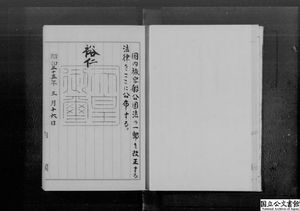 国の旅客船公団法の一部を改正する
法律をここに公布する。
裕仁
天皇
御璽
昭和三十五年三月十六日
国立公文書館
National Archives of Japan